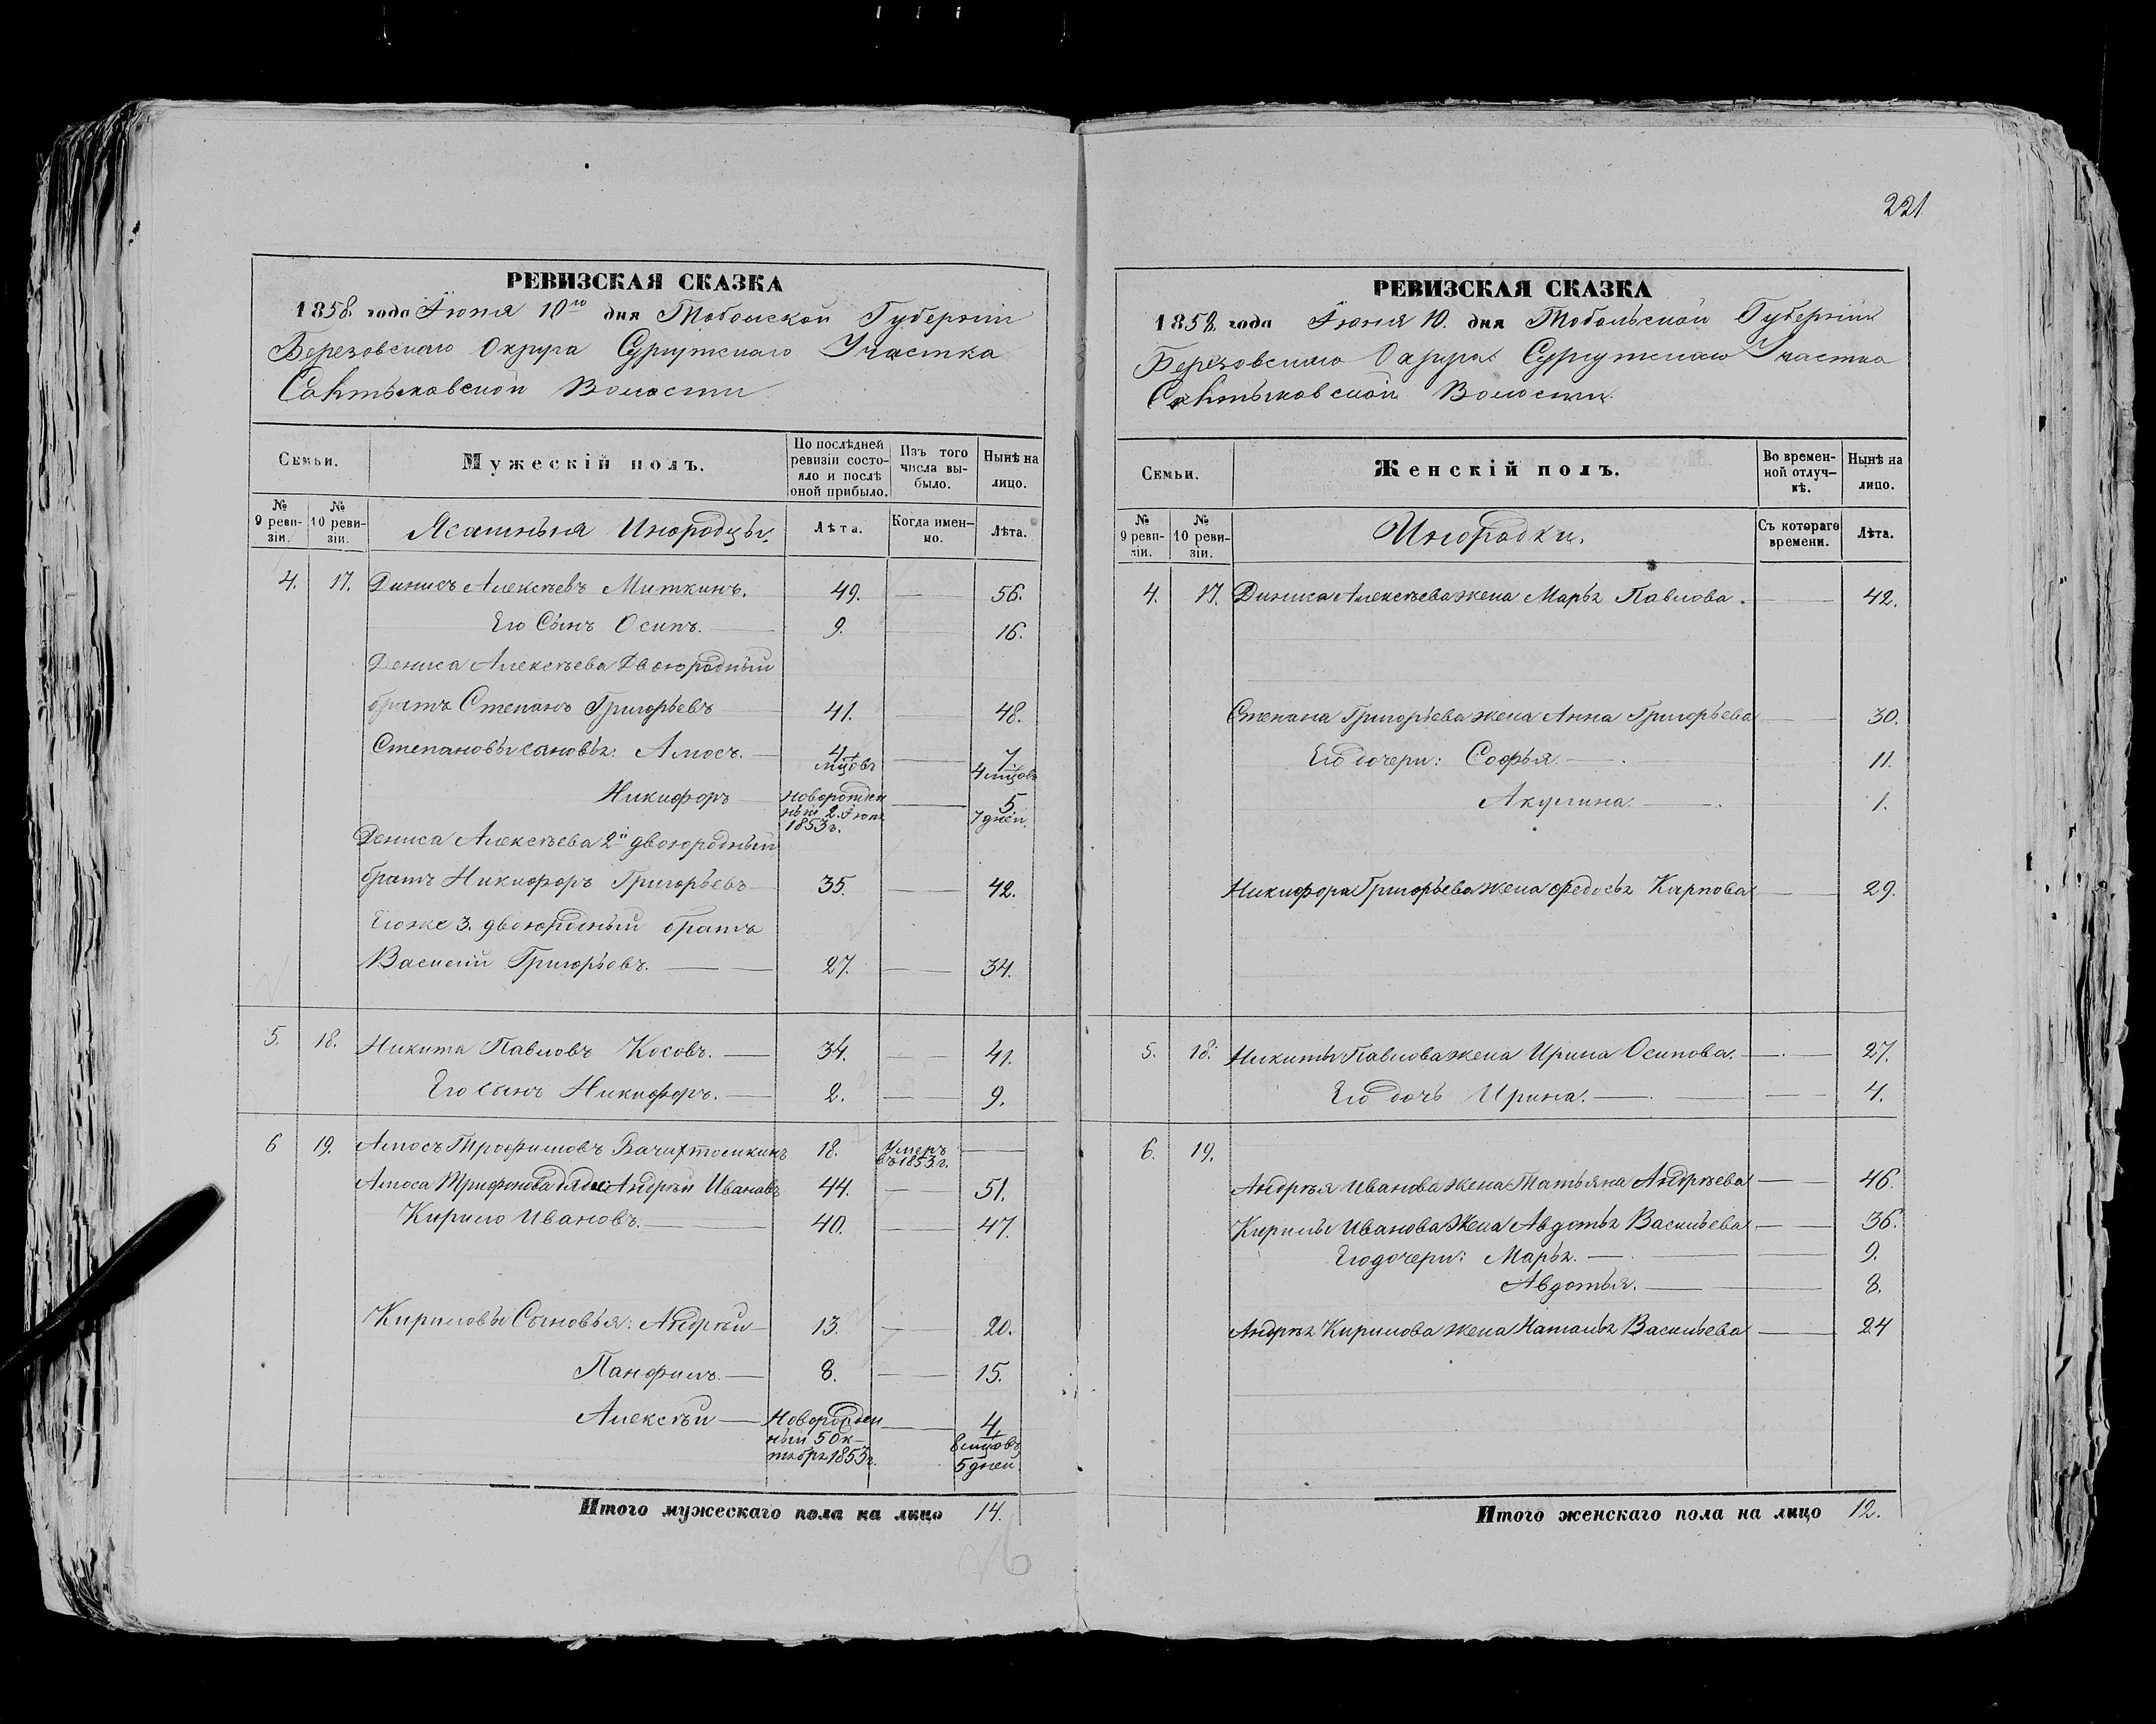 221
РЕВИЗСКАЯ СКАЗКА
1858. года Іюня 10го дня Тобольской Губерніи
Березовскаго Округа Сургутскаго Участка
Салтыковской Волости
Семьи.
Мужескій полъ.
По послѣдней ревизіи состояло и послѣ оной прибыло.
Изъ того числа выбыло.
Нынѣ на лицо.
№ 9 ревизіи.
№ 10 ревизіи.
Ясашныя Инородцы.
Лѣта.
Когда именно.
Лѣта.
4. 17. Динисъ Алексѣевъ Миткинъ. 49. — 56.
Его Сынъ Осипъ. — 9. — 16.
Дениса Алексѣева Двоюродный
братъ Степанъ Григорьевъ — 41. — 48.
Степановы сыновья: Амосъ. — 4 мцовъ — 7. 4 мцовъ
Никифоръ — Новорожденный 2. Іюня 1853 г. — 5. 7 дней.
Дениса Алексѣева 2й двоюродный
братъ Никифоръ Григорьевъ — 35. — 42.
Егоже 3. двоюродный братъ
Василій Григорьевъ. — 27. — 34.
5. 18. Никита Павловъ Косовъ. — 34. — 41.
Его сынъ Никифоръ. — 2. — 9.
6 19. Амосъ Трофимовъ 18. Умеръ въ 1853 г. —
Амоса Трифонова дядя: Андрей Ивановъ 44. — 51.
Кирило Ивановъ. — 40. — 47.
Кириловы Сыновья: Андрѣй — 13. — 20.
Панфилъ. — 8. — 15.
Алексѣй — Новорожденный 5 Октября 1853 г. — 4. 8 мцовъ 5 дней.
Итого мужескаго пола на лицо 14.
РЕВИЗСКАЯ СКАЗКА
1858. года Іюня 10. дня Тобольской Губерніи
Березовскаго Округа Сургутскаго Участка
Салтыковской Волости.
Семьи.
Женскій полъ.
Во временной отлучкѣ.
Нынѣ на лицо.
№ 9 ревизіи.
№ 10 ревизіи.
Инородки.
Съ котораго времени.
Лѣта.
4. 17. Диниса Алексѣева жена Марья Павлова. — 42.
Степана Григорьева жена Анна Григорьева — 30.
Его дочери: Софья. — 11.
Акулина. — 1.
Никифора Григорьева жена Федосья Карпова — 29.
5. 18. Никиты Павлова жена Ирина Осипова. — 27.
Его дочь Ирина. — 4.
6. 19.
Андрѣя Иванова жена Татьяна Андрѣева — 46.
Кирилы Иванова Жена Авдотья Васильева — 36.
Его дочери: Марья. — 9.
Авдотья. — 8.
Андрѣя Кирилова жена Наталья Васильева — 24
Итого женскаго пола на лицо 12.